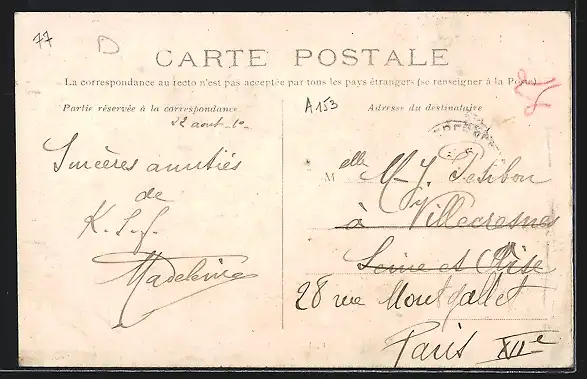 77
D
CARTE POSTALE
La correspondance au recto n'est pas acceptée par tous les pays étrangers (se renseigner à la Poste)
Partie réservée à la correspondance
A153
Adresse du destinataire
22 aout 10
Sincères amitiés
de
K. L. f.
Madeleine
Melle M-J. Petitbon
à Villecresnes
Seine et Oise
28 rue Montgallet
Paris XIIe